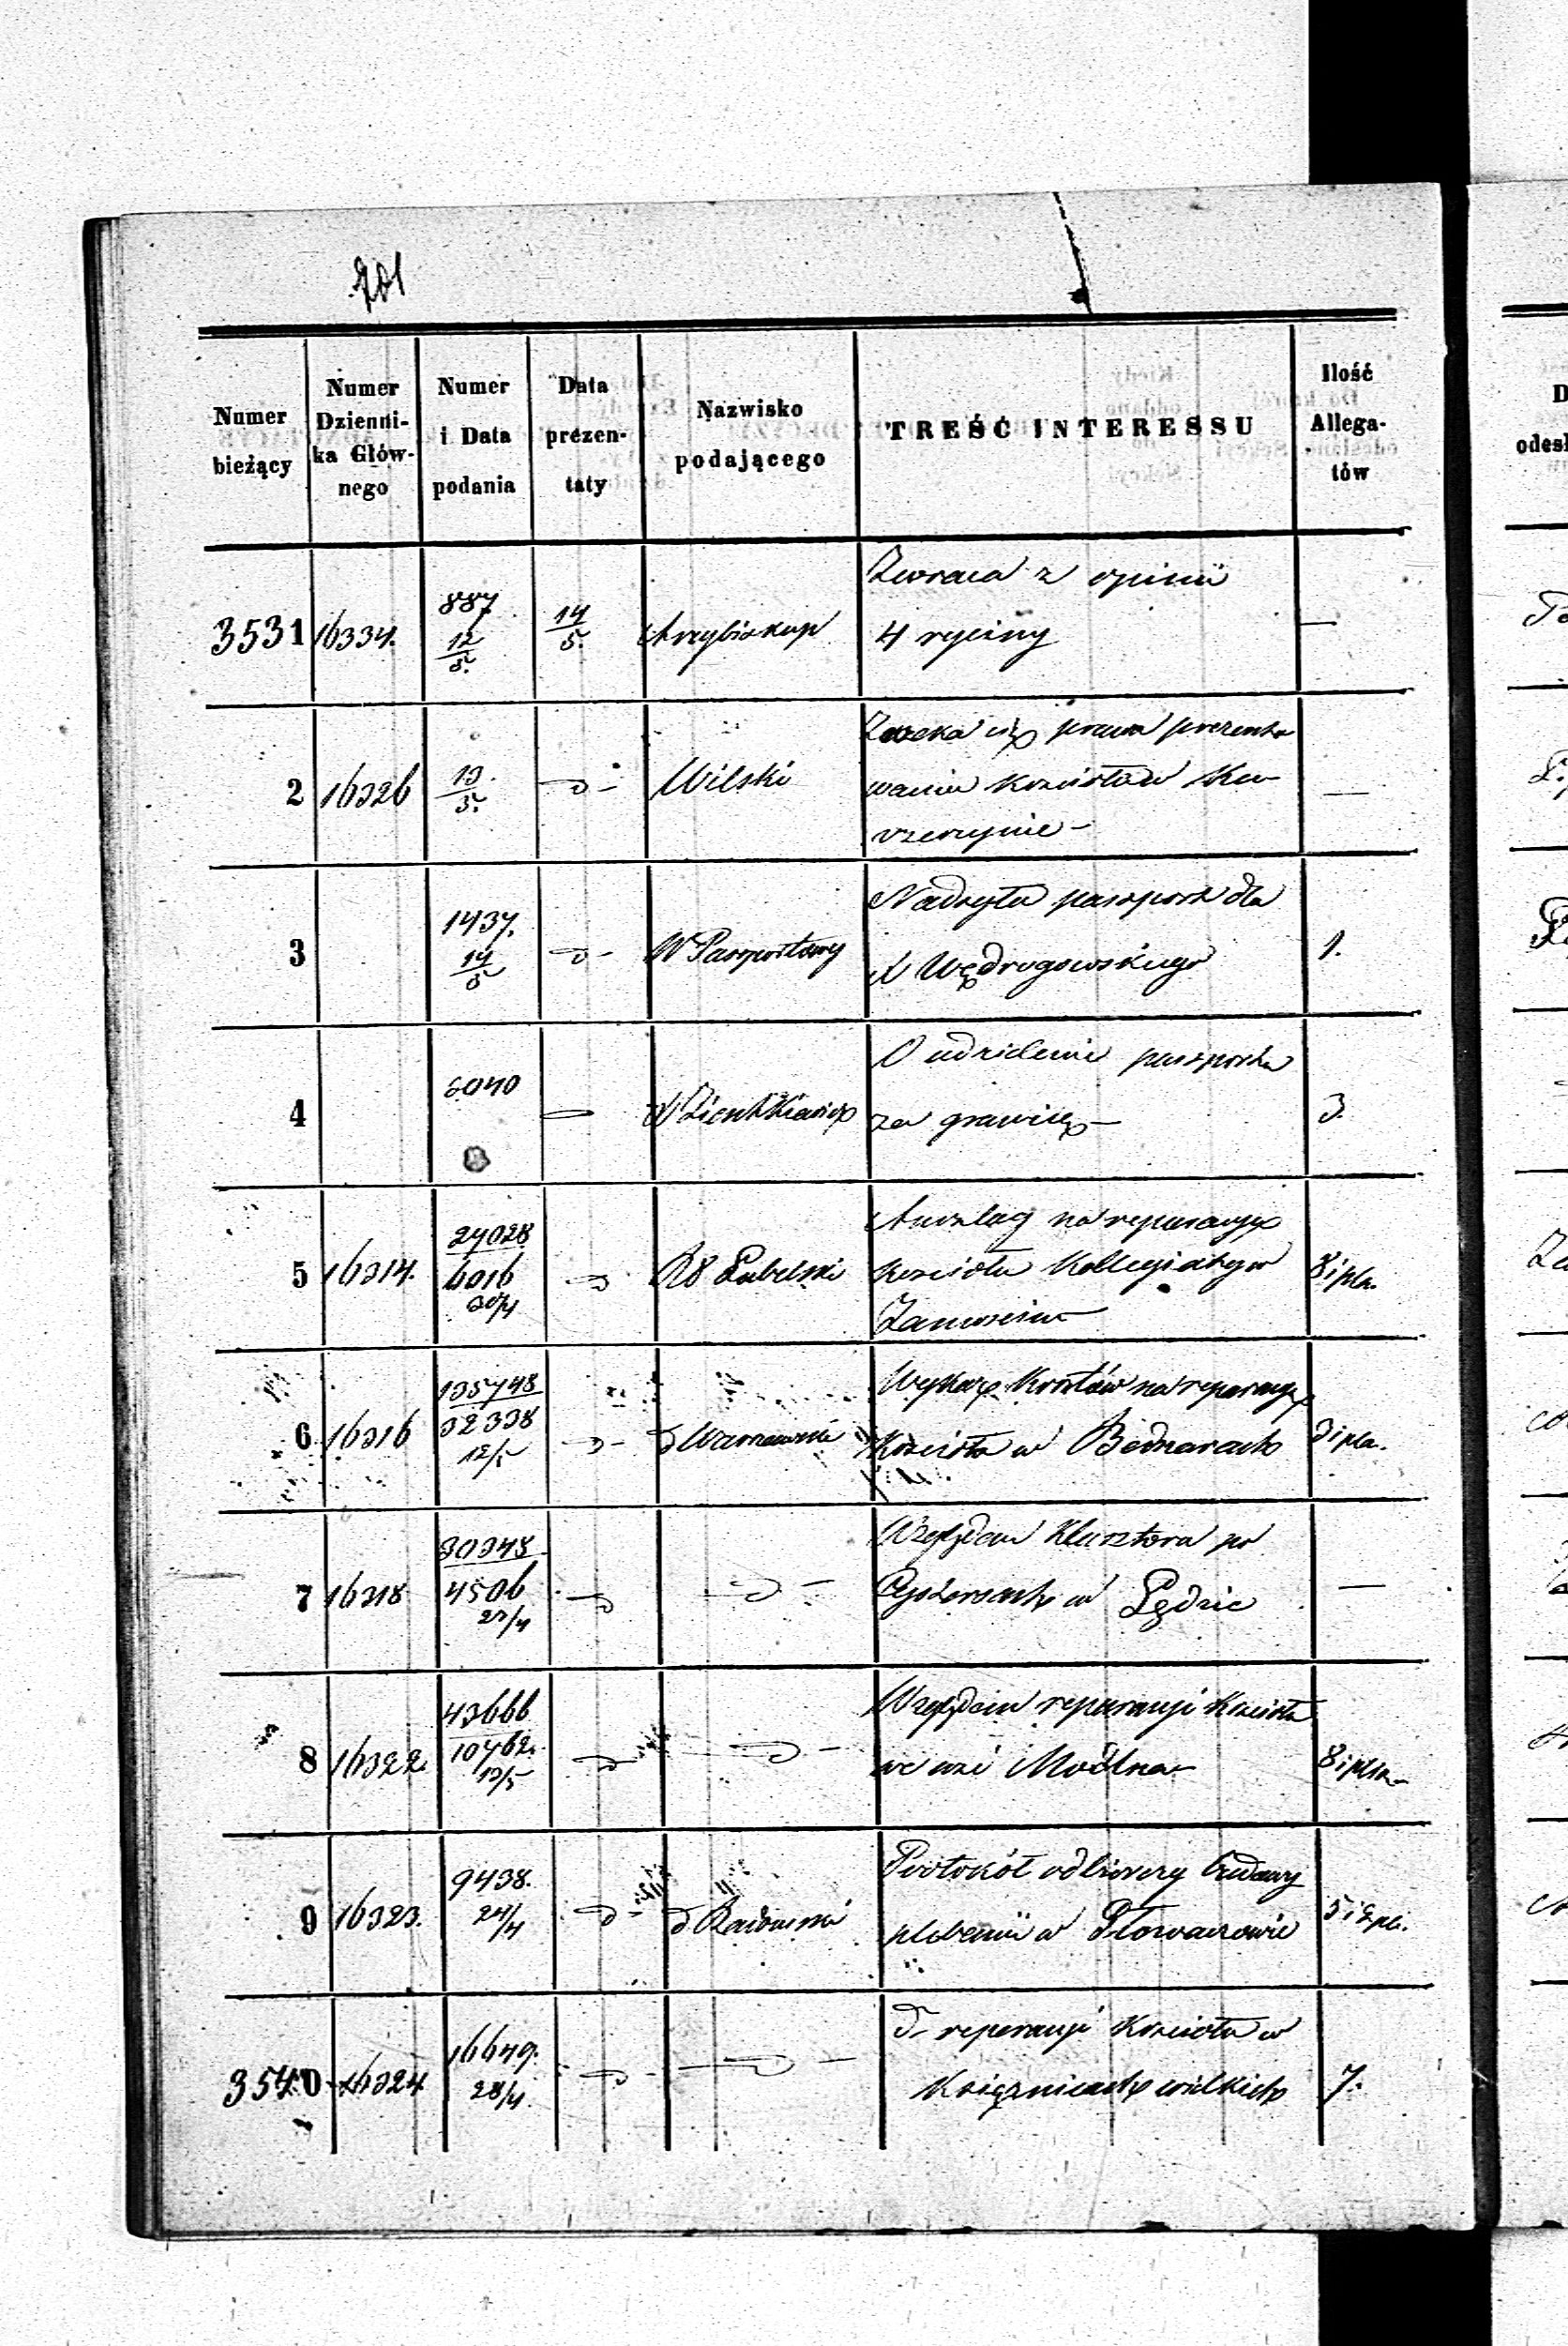 201
Numer bieżący
Numer Dzienni-ka Głów-nego
Numer i Data podania
Data prezen-taty
Nazwisko podającego
TREŚĆ INTERESSU
Ilość Allega-tów
3531 16334. 887 12/5. 14/5. Arcybiskup Zwraca z opinii
4 ryciny —
2 16326 13/5. d- Wilski Zrzeka się prawa prezento
wania kościołów
—
3 1437. 14/5 d- W Paszportowy Nadsyła paszport dla
X Wędrogowskiego 1.
4 6040 — O udzielenie paszportu
za granicę — 3.
5 16314. 24028 6016 30/4 d RG Lubelski Anszlag na reparacyę
kościoła Kollegiaty w 8 i pla.
Zamościu
6 16316 135748 32338 12/5 d- d Warszawski Wykaz kosztów na reparacyę
kościoła w Bednarach 3 i pla.
7 16318 30348 4506 23/4 d d — Względem Klasztoru po
Cystersach w Lądzie —
8 16322. 43666 10762. 13/5 d d — Względem reparacyi kościoła
we wsi Modlna 8 i pla.
9 16323. 9438. 24/4 d- d Radomski Protokół odbiorczy budowy
plebanii w
3540 16324 16649. 28/4. d- d — d- reparacyi kościoła w
Księżnicach wielkich 7.